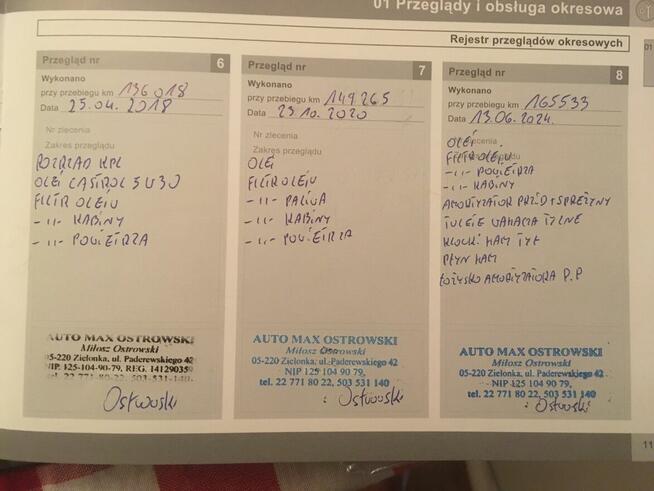 01 Przeglądy i obsługa okresowa
Rejestr przeglądów okresowych
Przegląd nr 6
Wykonano
przy przebiegu km 136 018
Data 25.04.2018
Nr zlecenia
Zakres przeglądu
ROZRZĄD KPL
OLEJ CASTROL 5W30
FILTR OLEJU
-„- KABINY
-„- POWIETRZA
AUTO MAX OSTROWSKI
Miłosz Ostrowski
05-220 Zielonka, ul. Paderewskiego 42
NIP. 125-104-90-79, REG. 14129035
tel. 22 771-80-22, 503-531-140
Ostrowski
Przegląd nr 7
Wykonano
przy przebiegu km 149 265
Data 23 10. 2020
Nr zlecenia
Zakres przeglądu
OLEJ
FILTR OLEJU
-„- PALIWA
-„- KABINY
-„- POWIETRZA
AUTO MAX OSTROWSKI
Miłosz Ostrowski
05-220 Zielonka, ul. Paderewskiego 42
NIP 125 104 90 79,
tel. 22 771 80 22, 503 531 140
Ostrowski
Przegląd nr 8
Wykonano
przy przebiegu km 165533
Data 13.06.2024.
Nr zlecenia
Zakres przeglądu
OLEJ
FILTR OLEJU
-„- POWIETRZA
-„- KABINY
AMORTYZATOR PRZÓD + SPRĘŻYNY
TULEJE WAHACZA TYLNE
KLOCKI HAM TYŁ
PŁYN HAM
ŁOŻYSKO AMORTYZATORA P.P
AUTO MAX OSTROWSKI
Miłosz Ostrowski
05-220 Zielonka, ul. Paderewskiego 42
NIP 125 104 90 79,
tel. 22 771 80 22, 503 531 140
Ostrowski
01
11